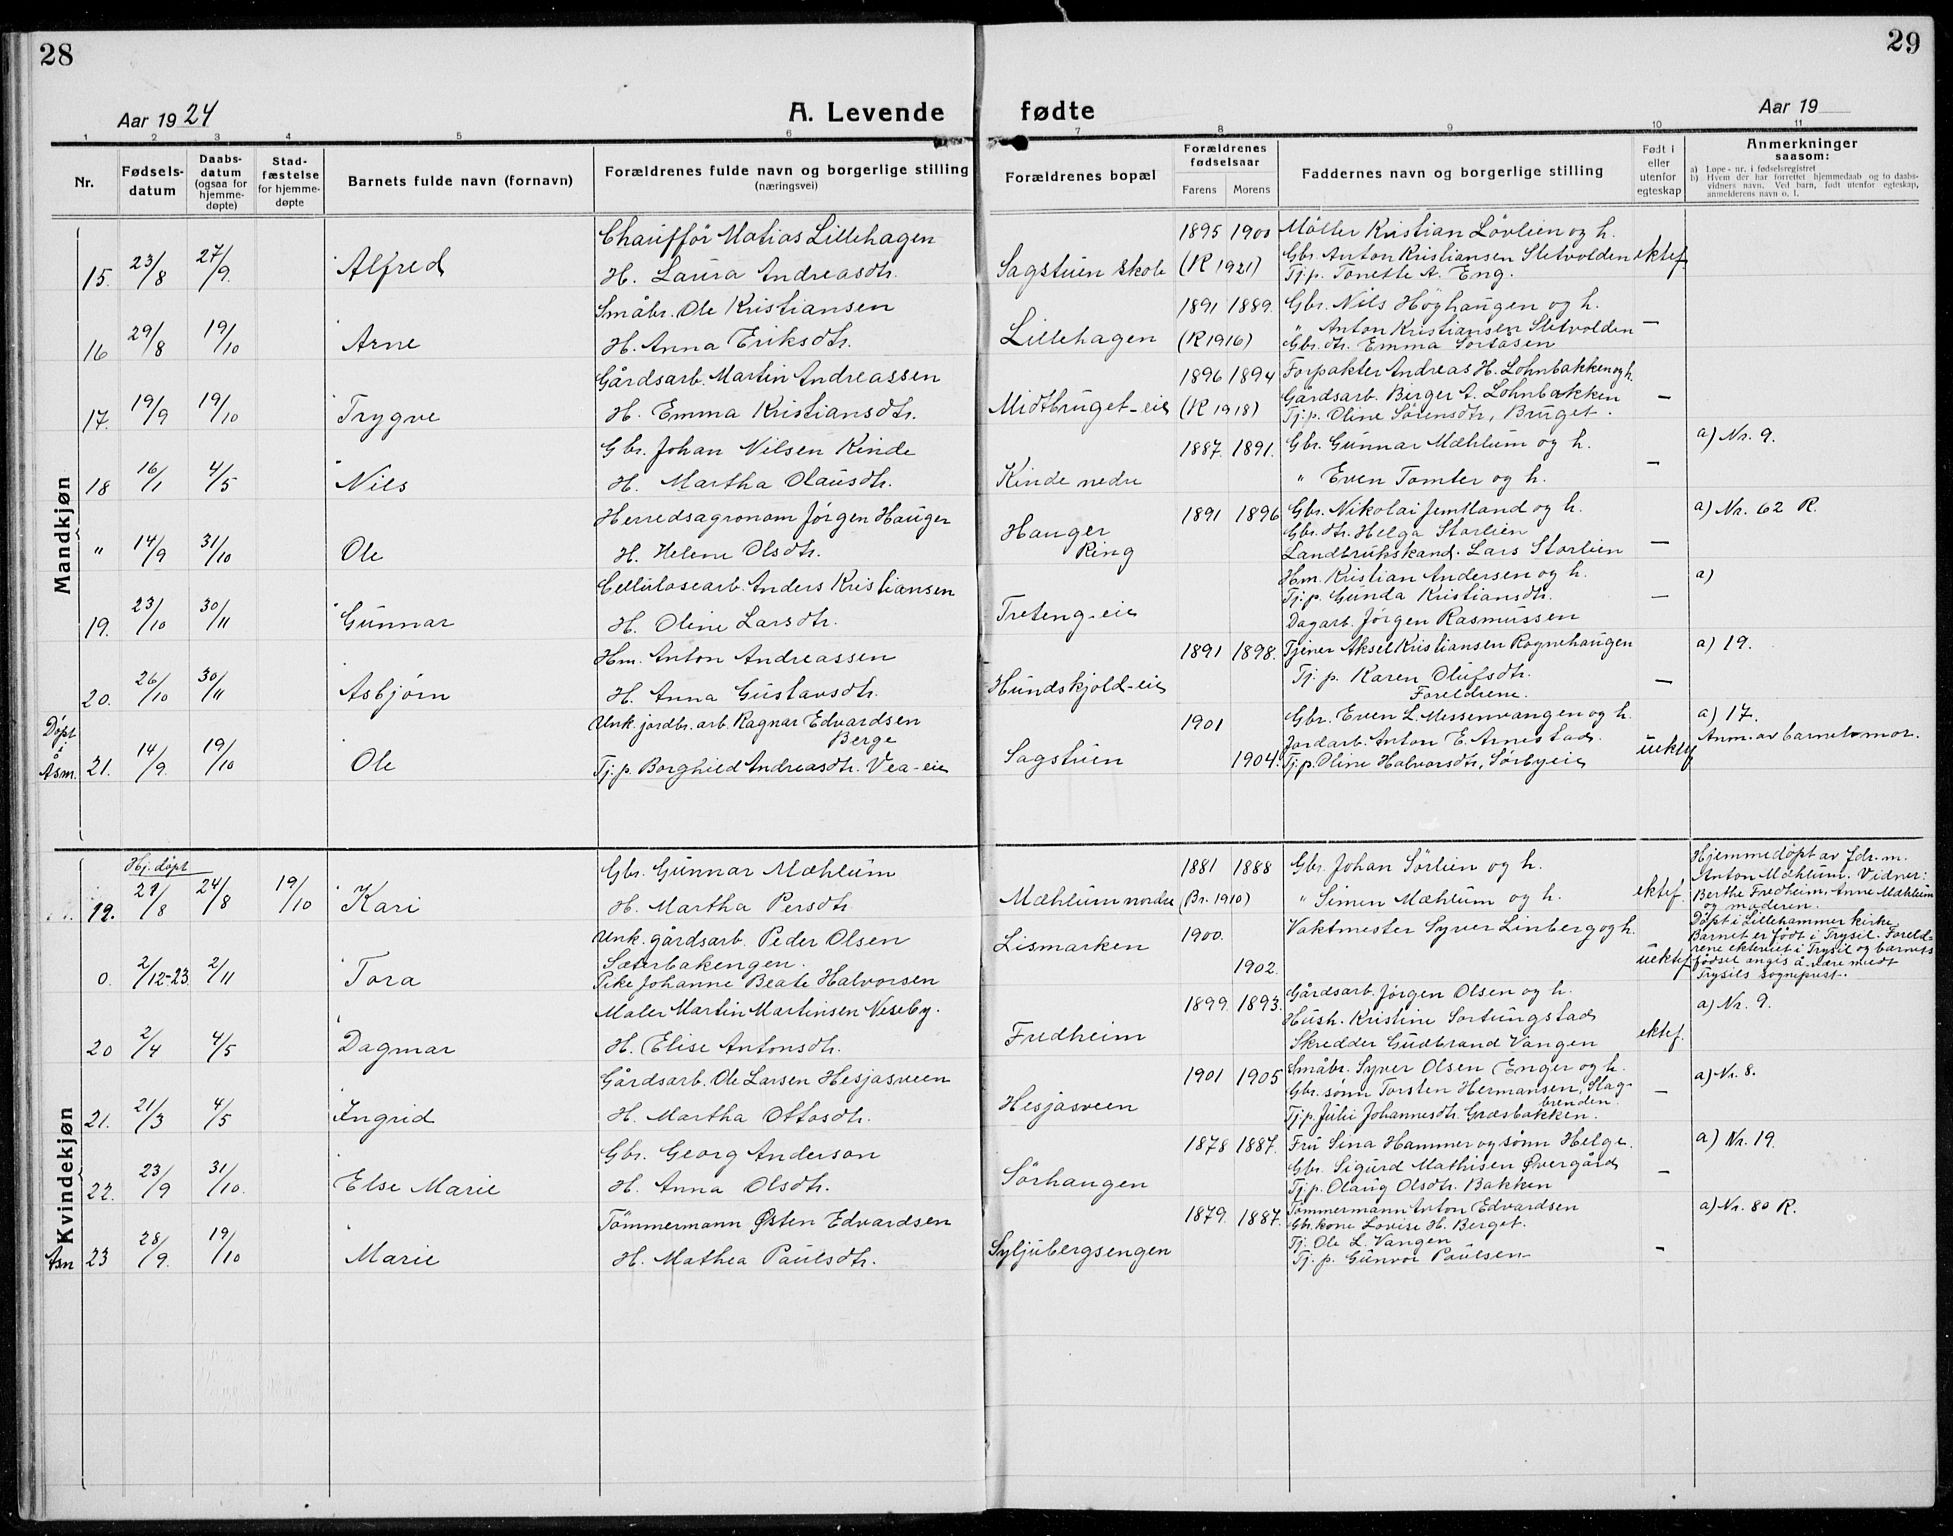 28
29
Aar 1924
A. Levende
fødte
Aar 19
1 2 3 4 5 6 7 8 9 10 11
Nr.
Fødsels-
datum
Daabs-
datum
(ogsaa for
hjemme-
døpte)
Stad-
fæstelse
for hjemme-
døpte
Barnets fulde navn (fornavn)
Forældrenes fulde navn og borgerlige stilling
(næringsvei)
Forældrenes bopæl
Forældrenes
fødselsaar
Farens Morens
Faddernes navn og borgerlige stilling
Født i
eller
utenfor
egteskap
Anmerkninger
saasom:
a) Løpe-nr. i fødselsregistret
b) Hvem der har forrettet hjemmedaab og to daabs-
vidners navn. Ved barn, født utenfor egteskap,
anmelderens navn o. l.
Mandkjøn
15. 23/8 27/9. Alfred
Chauffør Matias Lillehagen
H. Laura Andreasdtr.
Sagstuen skole
1895 1900
(K 1921)
Møller Kristian Lövlien og h.
Gbr. Anton Kristiansen Sletvolden
Tj.p. Tonette A. Eng.
ektef.
16 29/8 19/10 Arne
Småbr. Ole Kristiansen
H. Anna Eriksdtr.
Lillehagen
1891 1889.
(K 1916)
Gbr. Nils Höghaugen og h.
" Anton Kristiansen Sletvolden
Gbr. dtr. Emma Sortåsen
—
17. 19/9 19/10 Trygve
Gårdsarb. Martin Andreassen
H. Emma Kristiansdtr.
Midtbruget-eie
1896 1894
(K 1918)
Forpakter Andreas H. Lohnbakken og h.
Gårdsarb. Birger A. Lohnbakken
Tj.p. Oline Sörensdtr, Bruget.
—
18 16/1 4/5 Nils
Gbr. Johan Nilsen Kinde
H. Martha Olausdtr.
Kinde nedre
1887. 1891.
Gbr. Gunnar Mæhlum og h.
" Even Tomter og h.
—
a) Nr. 9.
" 14/9 31/10 Ole
Herredsagronom Jörgen Hauger
H. Helene Olsdtr.
Hauger
Ring
1891 1896
Gbr. Nikolai Jemtland og h.
Gbr. dtr. Helga Storlien
Landbrukskand. Lars Storlien
—
a) Nr. 62 R.
19. 23/10 30/11 Gunnar
Cellulosearb. Anders Kristiansen
H. Oline Larsdtr.
Treteng-eie
Hm. Kristian Andersen og h.
Tj.p. Gunda Kristiansdtr.
Dagarb. Jörgen Rasmussen
—
a)
20. 26/10 30/11 Asbjørn
Hm. Anton Andreassen
H. Anna Gustavsdtr.
Hundskjold-eie
1891 1898.
Tjener Aksel Kristiansen Rognehaugen
Tj.p. Karen Olufsdtr.
Foreldrene.
—
a) 19.
Döpt
i
Åsm. 21. 14/9. 19/10 Ole
Unk. jordbr. arb. Ragnar Edvardsen
Berge
Tj.p. Borghild Andreasdtr. Vea-eie
Sagstuen
1901
1904.
Gbr. Even L. Messenvangen og h.
Jordarb. Anton E. Arnestad
Tj.p. Oline Halvorsdtr, Sörbyeie
uekty
a) 17.
Anm. av barnets mor.
Kvindekjøn
Hj. döpt
19. 21/8 24/8 19/10 Kari
Gbr. Gunnar Mæhlum
H. Martha Persdtr.
Mæhlum nordre
1881 1888
(Br. 1910)
Gbr. Johan Sörlien og h.
" Simen Mæhlum og h.
ektef.
Hjemmedöpt av jdr.m.
Anton Mæhlum. Vidner:
Berthe Fredheim. Anne Mæhlum
og moderen.
0. 2/12-23 2/11 Tora
Unk. gårdsarb. Peder Olsen
Sæterbakengen.
Pike Johanne Beate Halvorsen
Lismarken
1900.
1902.
Vaktmester Syver Linberg og h.
uektef
Döpt i Lillehammer kirke
Barnet er födt i Trysil. Foreld-
rene ekteviet i Trysil og barnets
födsel angis å være meldt
Trysils sogneprest.
20 2/4 4/5 Dagmar
Maler Martin Martinsen Neseby.
H. Elise Antonsdtr.
Fredheim
1899. 1893.
Gårdsarb. Jörgen Olsen og h.
Hush. Kristine Sortungstad
Skredder Gudbrand Vangen
ektef.
a) Nr. 9.
21. 21/3 4/5 Ingrid
Gårdsarb. Ole Larsen Hesjasveen
H. Martha Ottosdtr.
Hesjasveen
1901 1905
Småbr. Syver Olsen Enger og h.
Gbr. sønn Torsten Hermansen, Slag-
brenden.
Tj.p. Julie Johannesdtr. Græsbakken.
—
a) Nr. 8.
22. 23/9 31/10. Else Marie
Gbr. Georg Anderson
H. Anna Olsdtr.
Sörhaugen
1878 1887.
Fru Sina Hammer og sönn Helge.
Gbr. Sigurd Mathisen Övergård
Tj.p. Olaug Olsdtr. Bakken
—
a) Nr. 19.
Åsm 23 28/9. 19/10 Marie
Tömmermann Østen Edvardsen
H. Mathea Paulsdtr.
Syljubergsengen
1879. 1887.
Tömmermann Anton Edvardsen
Gbr. kone Lovise H. Berget.
Tj. Ole L. Vangen
Tj. p. Gunvor Paulsen
—
a) Nr. 80 R.